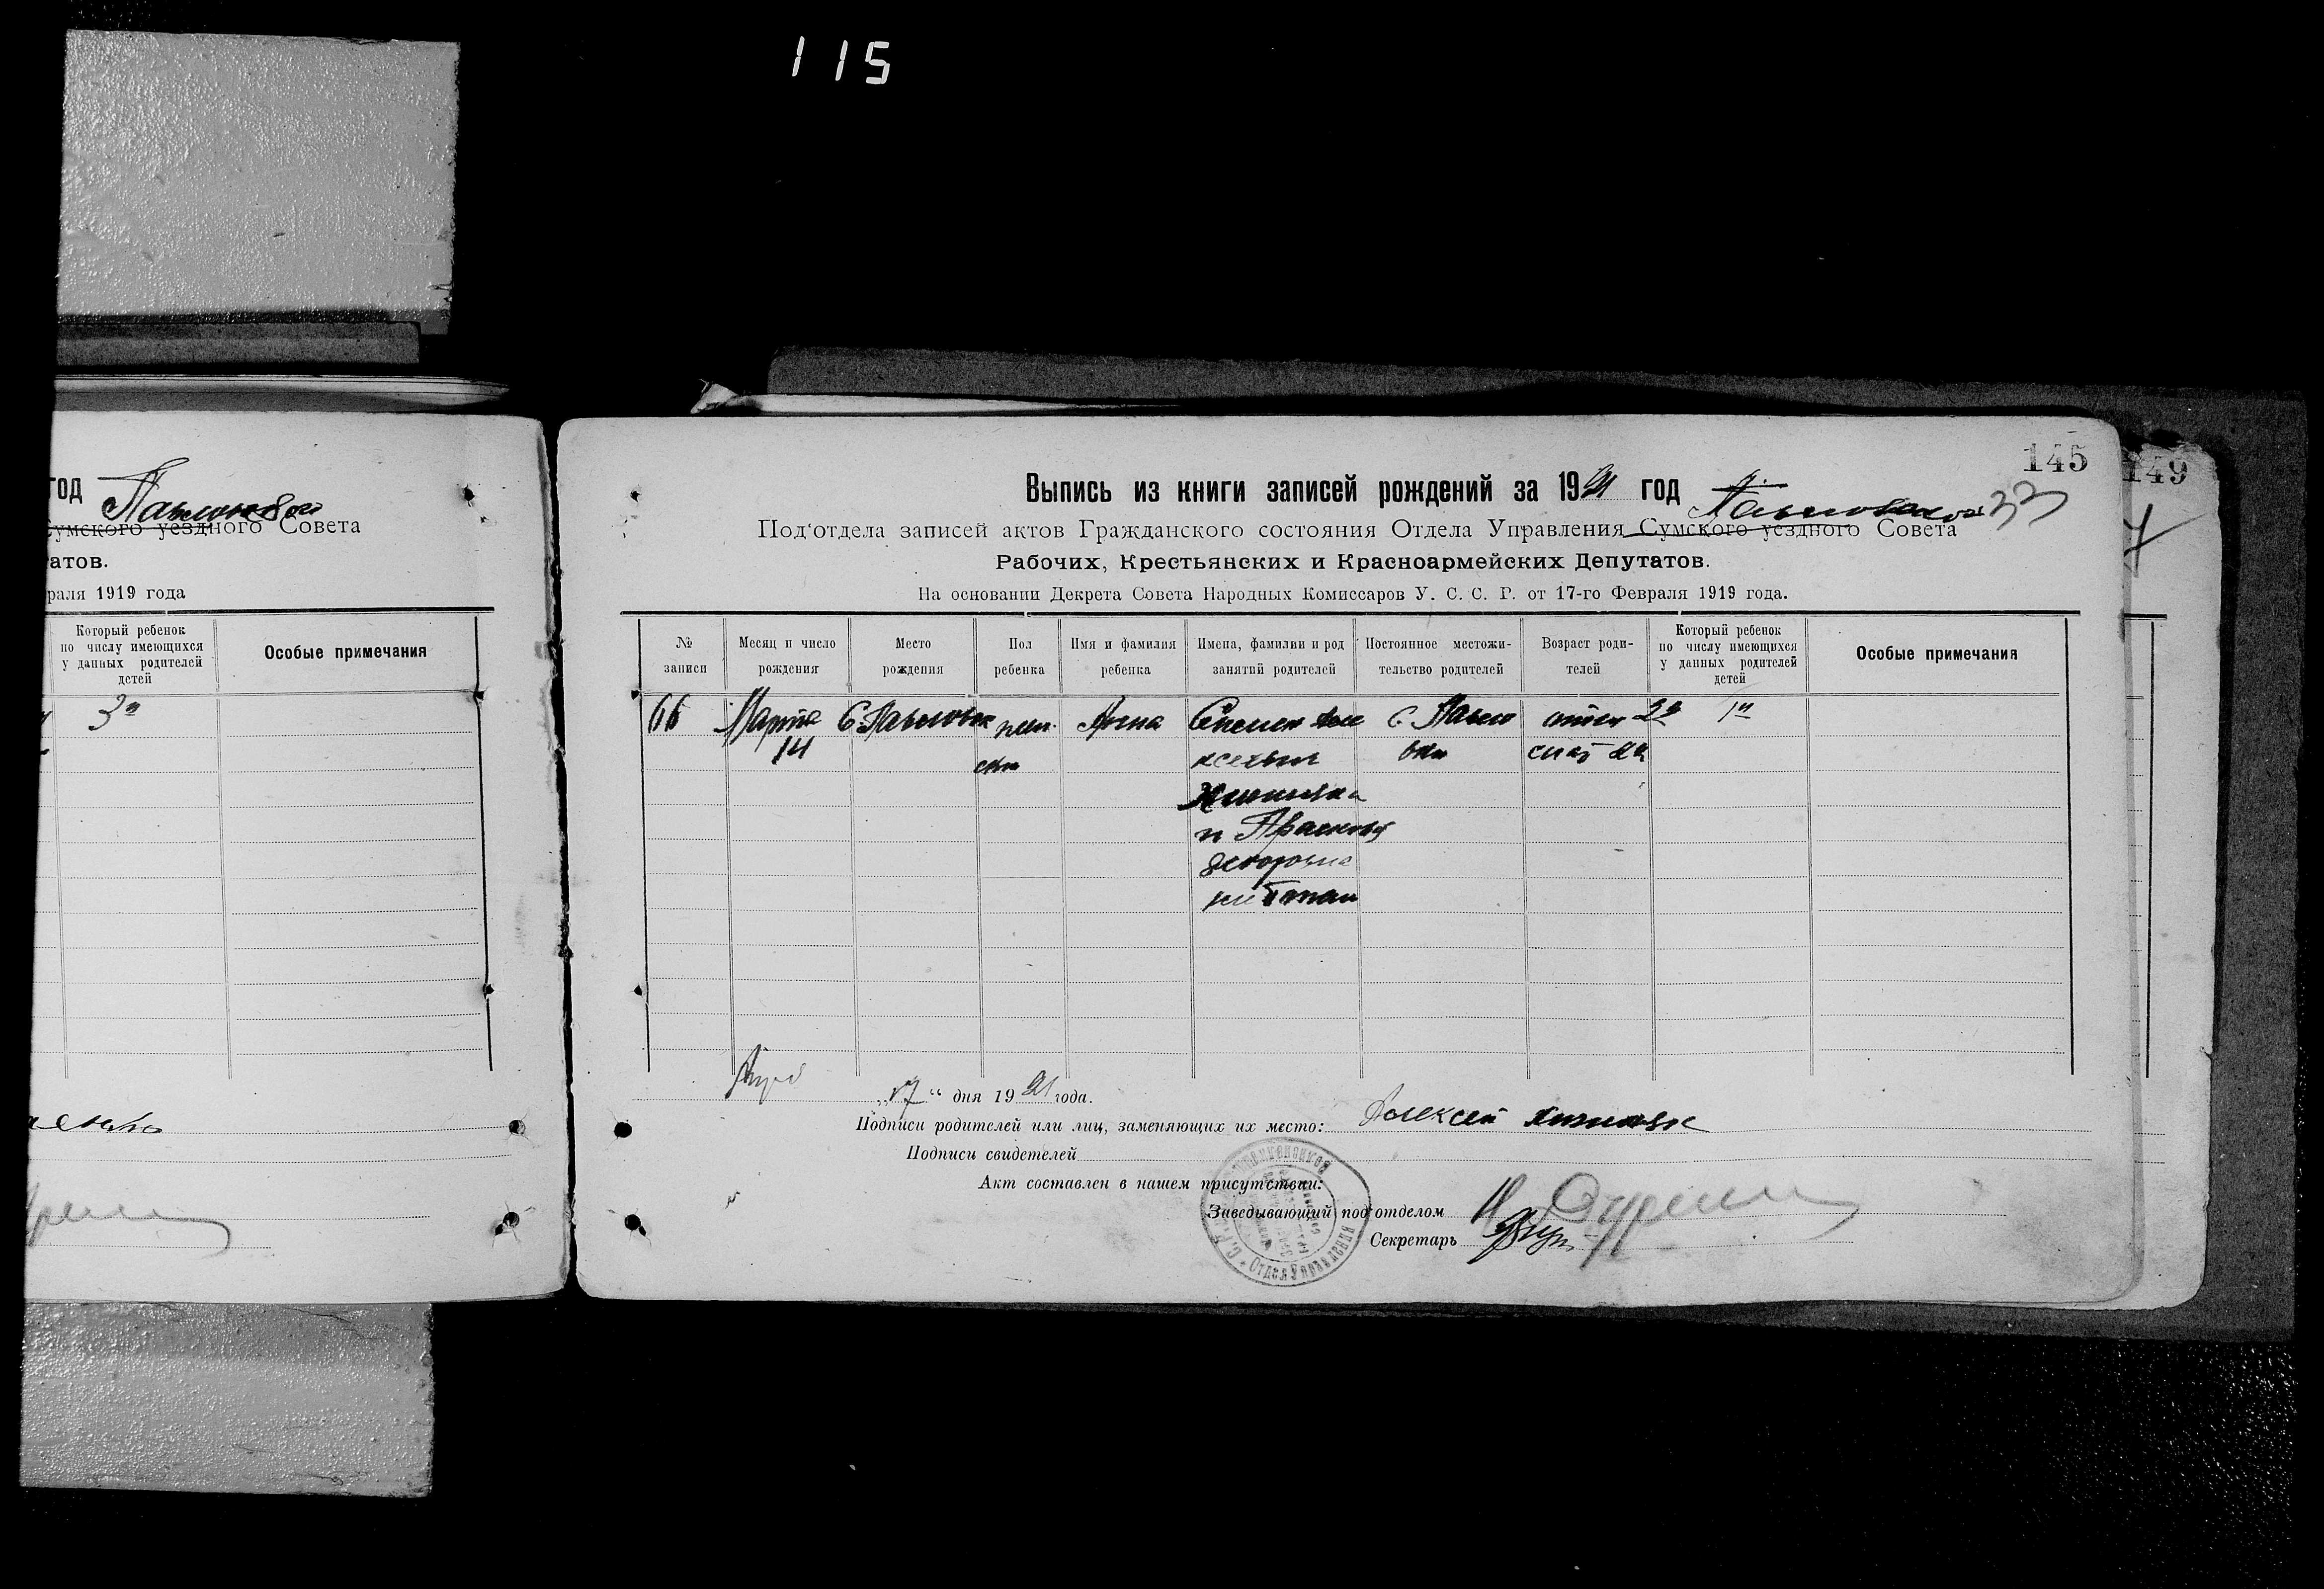 115
год Павловского
Сумского уездного Совета
татов.
раля 1919 года
Который ребенок
по числу имеющихся
у данных родителей
детей
Особые примечания
3й
145
149
Выпись из книги записей рождений за 1921 год Павловского 33
Под'отдела записей актов Гражданского состояния Отдела Управления Сумского уездного Совета
Рабочих, Крестьянских и Красноармейских Депутатов.
На основании Декрета Совета Народных Комиссаров У. С. С. Р. от 17-го Февраля 1919 года.
№ записи
Месяц и число рождения
Место рождения
Пол ребенка
Имя и фамилия ребенка
Имена, фамилии и род занятий родителей
Постоянное местожительство родителей
Возраст родителей
Который ребенок по числу имеющихся у данных родителей детей
Особые примечания
66
Марта
14
С. Павловки
жен
ский
Анна
Семен Але
ксеевич
и Прасковья
С. Павло
вки
отец 22
мат 22
1й
„17“ дня 1921 года.
Подписи родителей или лиц, заменяющих их место: Алексей
Подписи свидетелей
Акт составлен в нашем присутствии:
Заведывающий под'отделом
Секретарь
Отдел Управления